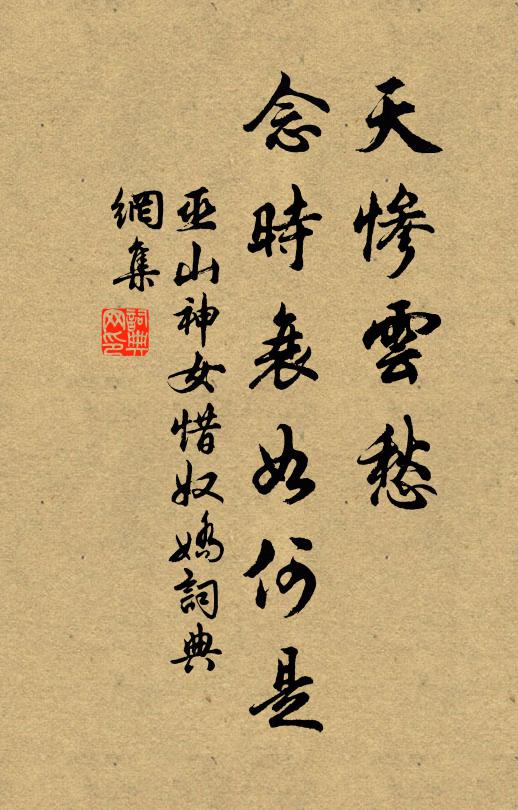 天慘雲愁
念時衰如何是
巫山神女惜奴嬌詞典
網集
詞典
网印